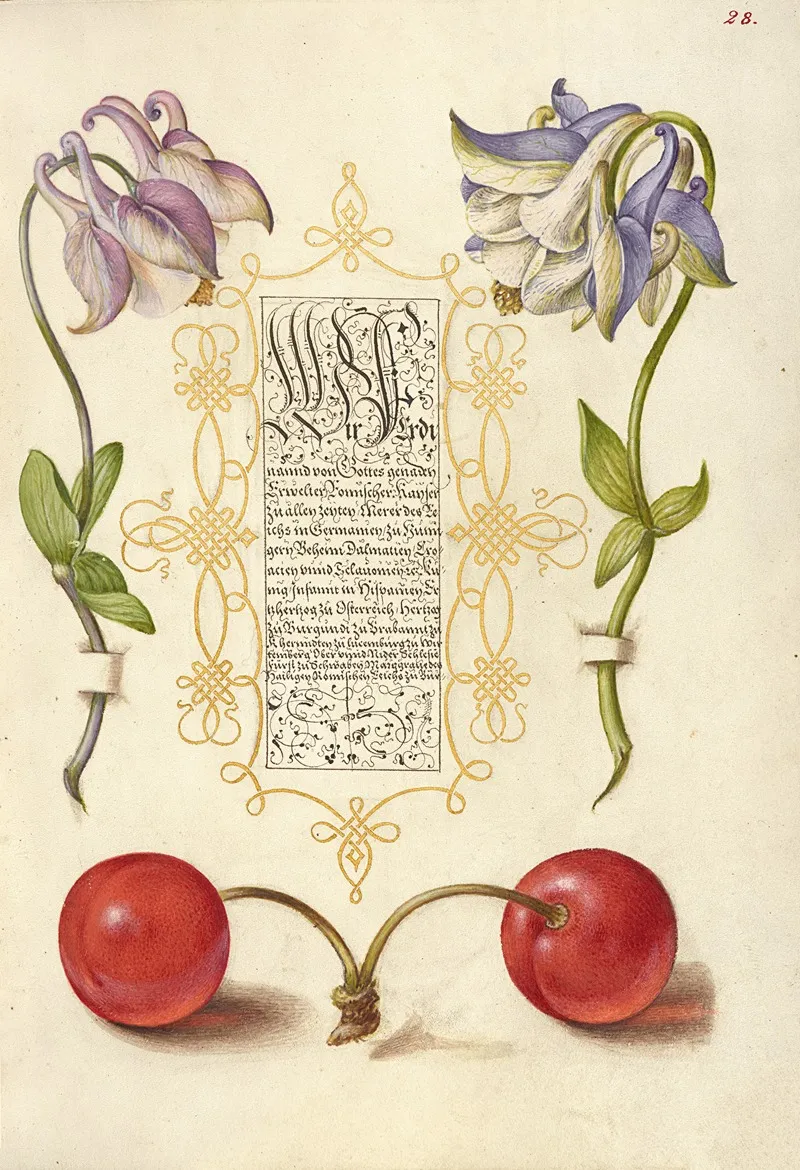 28.
Wir Ferdi
nannd von Gottes genaden
Erwelter Römischer Kayser
zu allen zeyten Merer des Re
ichs in Germanien, zu Hun
gern Beheim Dalmatien Cro-
acien vnnd Sclauonien zc. Kü
nig, Infannt in Hispanien Er
tzhertzog zu Osterreich, Hertzog
zu Burgundi zu Brabannt zu
Kherndten zu Lucemburg zu Wir
temberg Ober vnnd Nider Schlesie
Fürst zu Schwaben Marggraf des
Hailigen Römischen Reichs zu Bur-